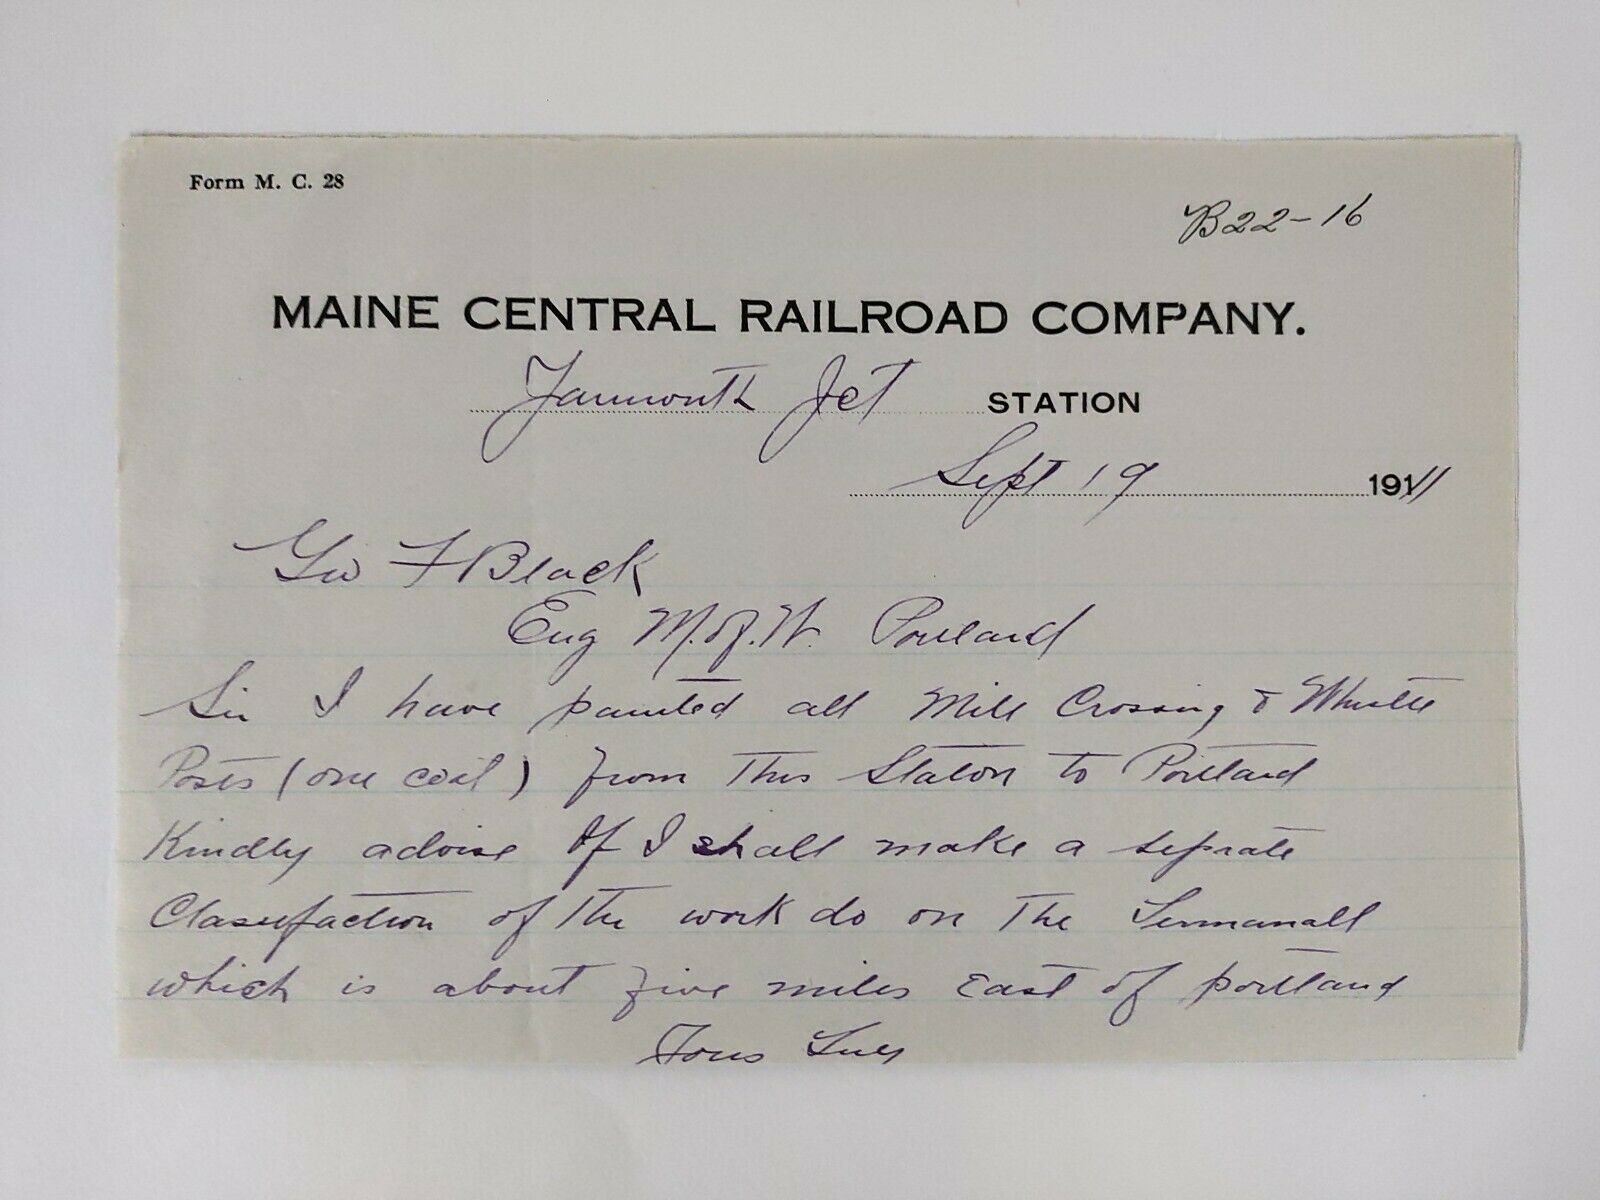 Form M. C. 28
B22-16
MAINE CENTRAL RAILROAD COMPANY.
Yarmouth Jct STATION
Sept 19 1911
Geo F Black
Eng M. of. W. Portland
Sir I have painted all Mile Crossing & Whistle
Posts (one coat) from This Station to Portland
Kindly advise If I shall make a seprate
Classifaction of The work do on The Termanall
which is about five miles East of portland
Yours Truly